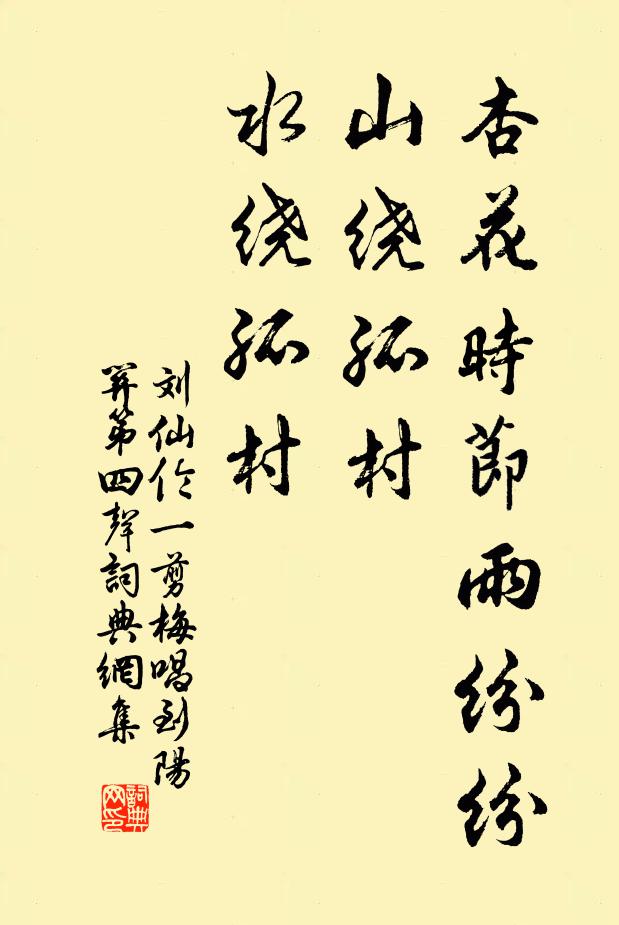 杏花時節雨紛紛
山绕孤村
水绕孤村
刘仙伦一剪梅唱到陽
関第四聲詞典網集
詞典
网印